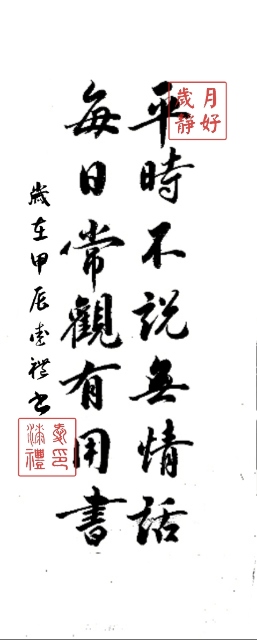 平時不説無情話
每日常觀有用書
歲在甲辰 禮書
歲月靜好